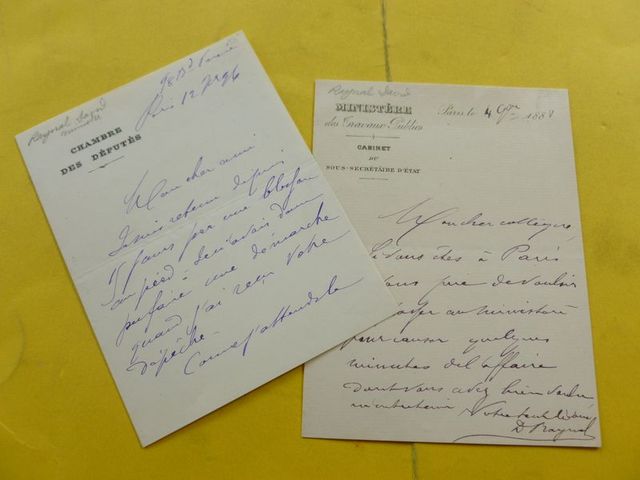 Raynal David
ministre
CHAMBRE
DES DÉPUTÉS
Paris 12
Mon cher ami
Je suis retenu depuis
15 jours par une
au pied - Je
pu faire une démarche
quand j'ai reçu votre
dépêche -
Comme j'attends le
Raynal David
MINISTÈRE
des Travaux Publics
CABINET
DU
SOUS-SECRÉTAIRE D'ÉTAT
Paris, le 4 188
Mon cher collègue,
Si vous êtes à Paris
vous prie de vouloir
passer au ministère
pour causer quelques
minutes de l'affaire
dont vous avez bien voulu
m'entretenir Votre tout dévoué
D Raynal